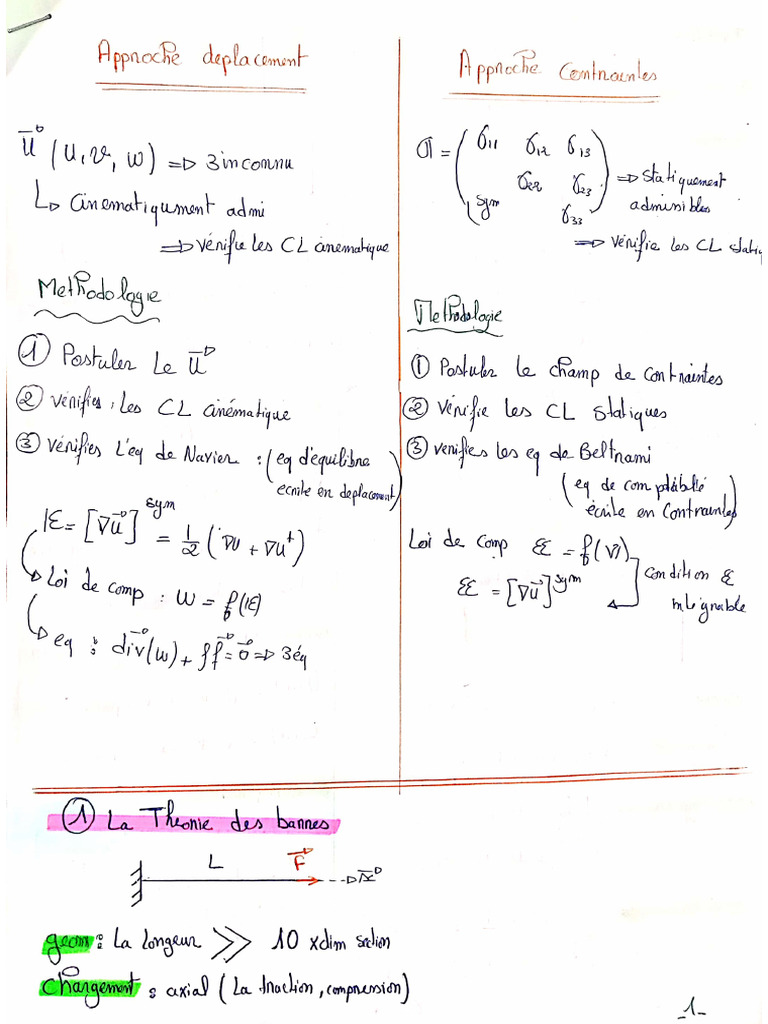 Approche deplacement
u⃗ (u, v, w) => 3 inconnu
↳ Cinematiquement admi
=> vérifie les CL cinematique
Methodologie
① Postuler le u⃗
② vérifies les CL cinématique
③ vérifies l'eq de Navier : (eq d'équilibre
écrite en deplacement)
𝔼 = [∇u⃗]^sym = 1/2 (∇u + ∇u^t)
↳ Loi de comp : W = f(𝔼)
↳ eq : div⃗(W) + ρf⃗ = 0⃗ => 3 éq
Approche Contraintes
σ = ( σ11 σ12 σ13
σ22 σ23
sym σ33 ) => Statiquement
admissibles
=> Vérifie les CL stati
Methodologie
① Postuler le champ de contraintes
② Vérifie les CL Statiques
③ verifies les eq de Beltrami
(eq de comptabilité
écrite en Contraintes)
Loi de Comp 𝔼 = f(σ)
𝔼 = [∇u⃗]^sym
condition 𝔼
intégrable
① La Théorie des barres
L F⃗ x⃗
geom : La longeur >> 10 xdim section
Chargement : axial (La traction, compression)
-1-